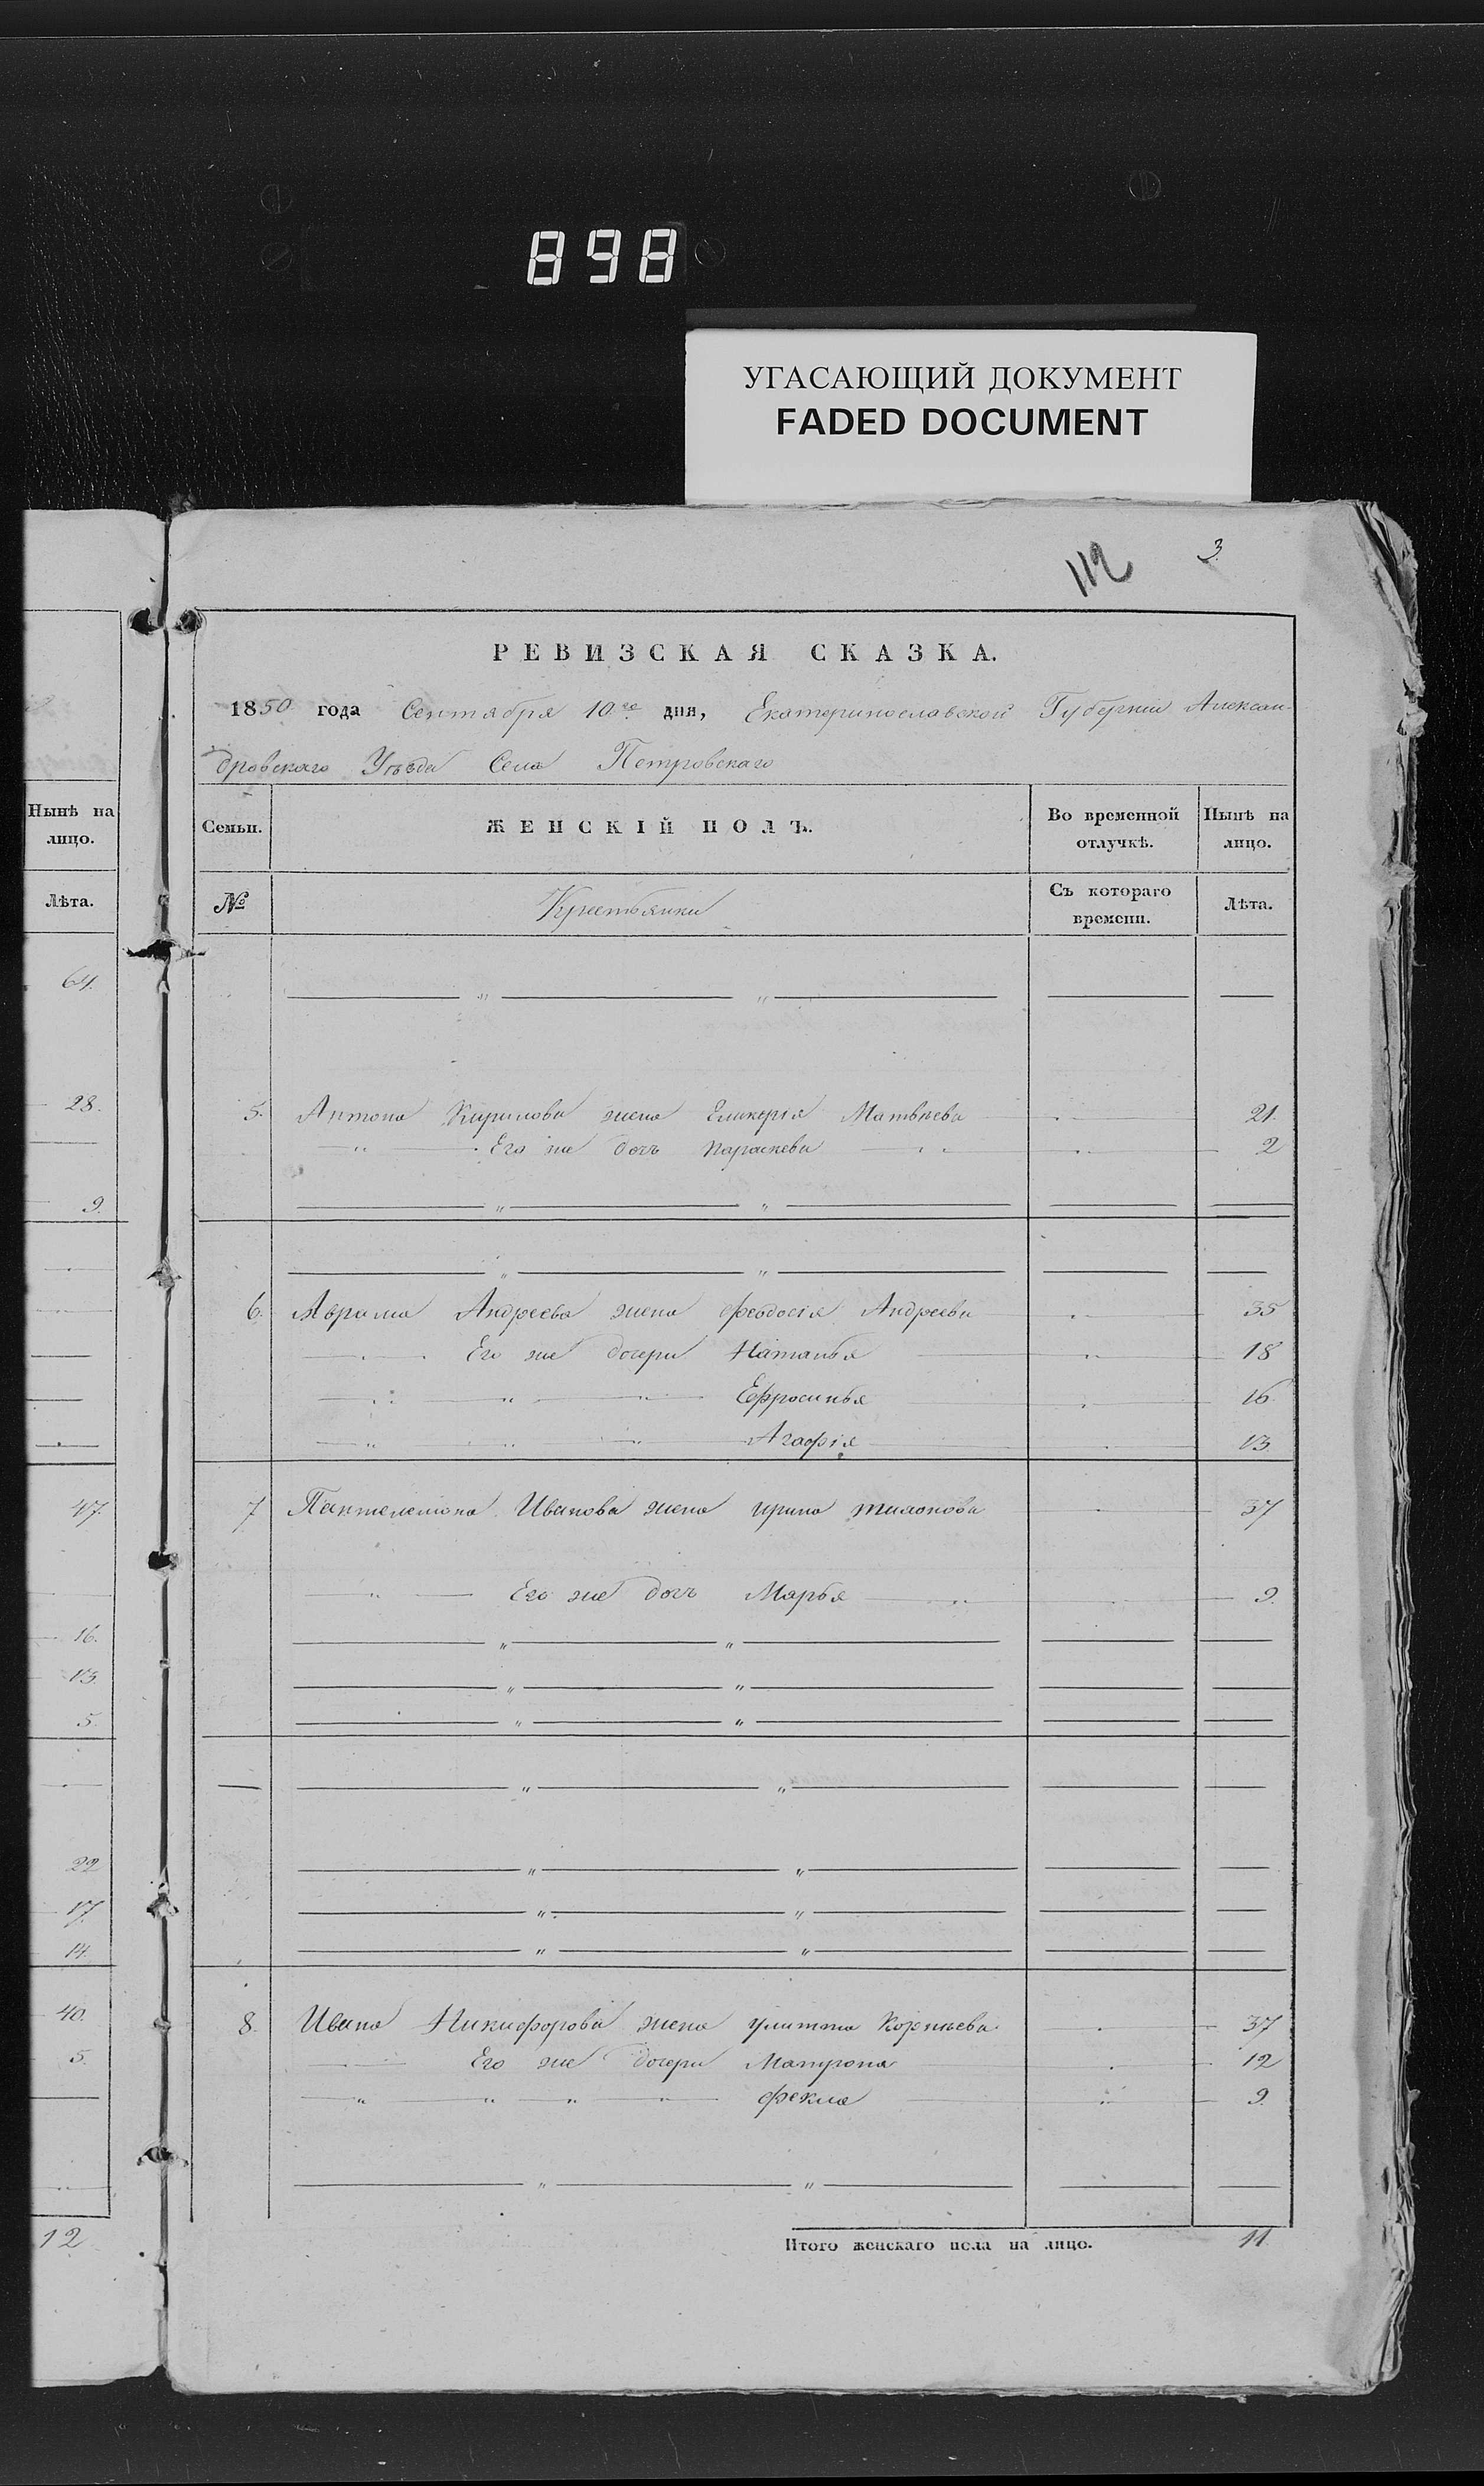 898
УГАСАЮЩИЙ ДОКУМЕНТ
FADED DOCUMENT
112 3
РЕВИЗСКАЯ СКАЗКА.
1850 года Сентября 10го дня, Екатеринославской Губернiи Алексан-
дровскаго Уѣзда Села Петровскаго
Нынѣ на лицо.
Лѣта.
64.
28.
9.
47.
16.
13.
5.
22
17.
14.
40.
5.
12
Семьи. ЖЕНСКIЙ ПОЛЪ. Во временной отлучкѣ. Нынѣ на лицо.
№ Крестьянки Съ котораго времени. Лѣта.
5. Антона Кирилова жена Гликерiя Матвѣева 21.
Его же дочь Параскева 2
6. Аврама Андреева жена Феодосiя Андреева 35
Его же дочери Наталья 18
Ефросинья 16
Агафiя 13
7 Пантелемона Иванова жена Ирина 37
Его же дочь Марья 9.
8. Ивана Никифорова жена Улитта Корнѣева 37
Его же дочери Матрона 12
Фекла 9.
Итого женскаго пола на лицо. 11